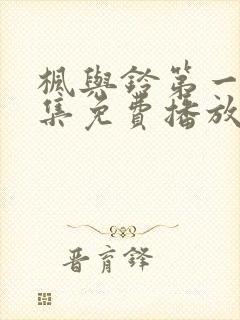 楓與鈴第一
集免費播放
晋育鋒